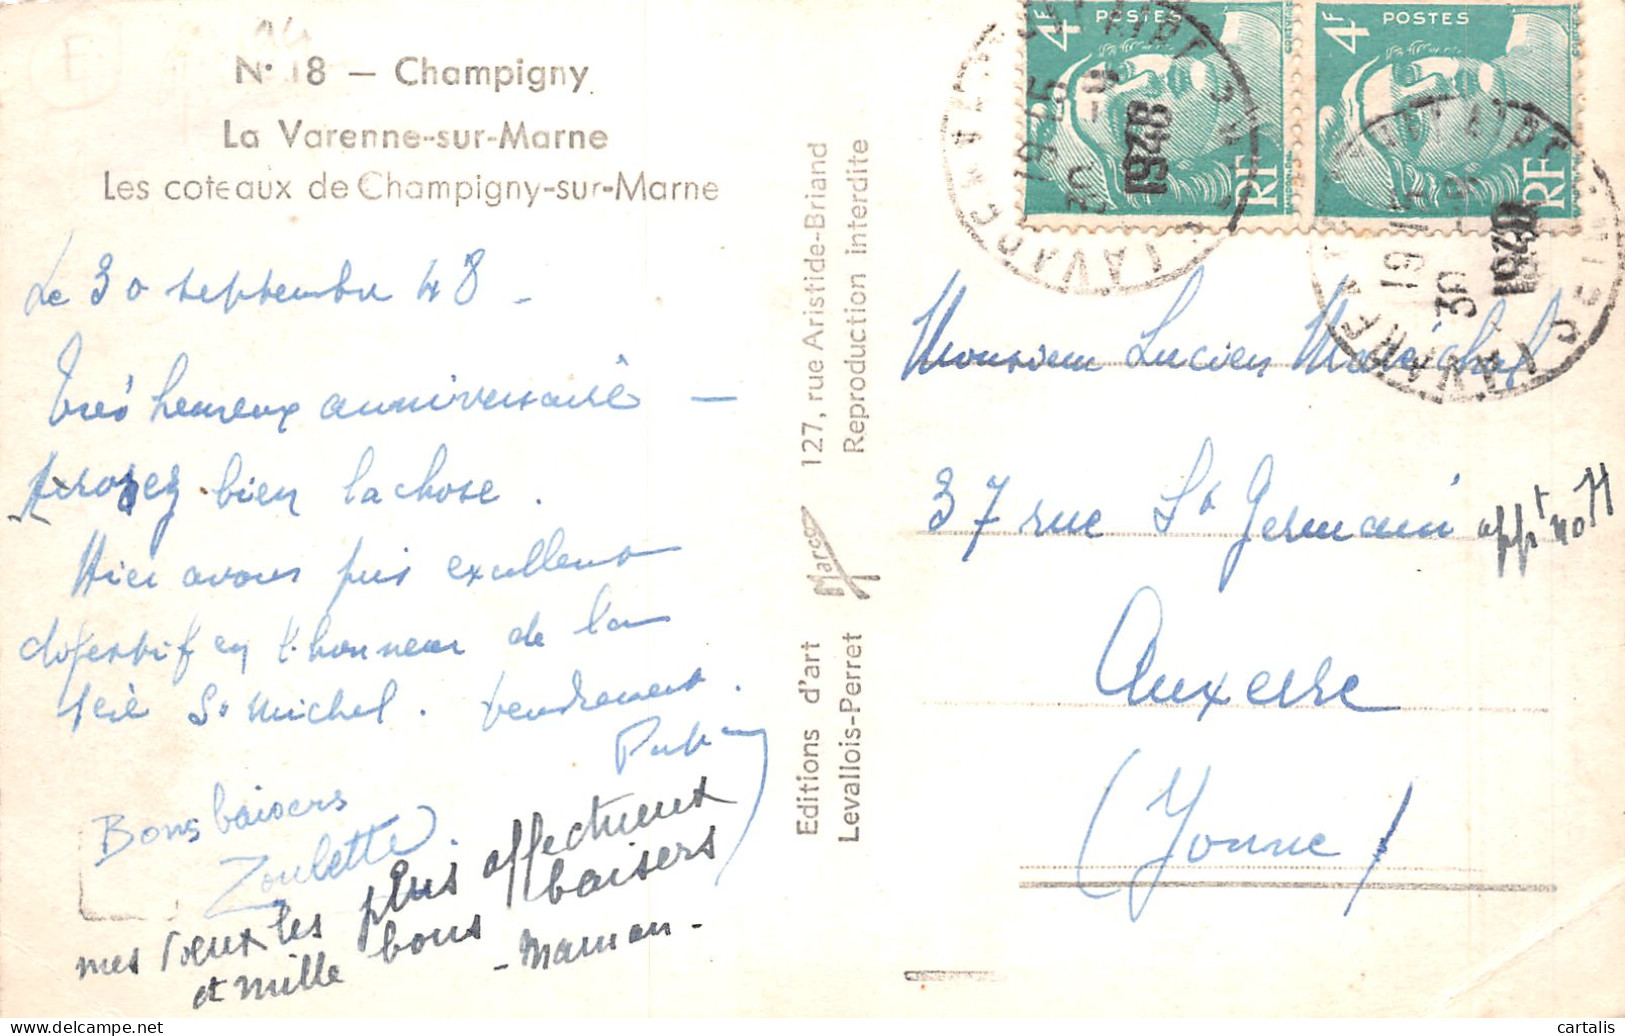 N° 18 — Champigny
La Varenne-sur-Marne
Les coteaux de Champigny-sur-Marne
Le 30 septembre 48 -
Très heureux anniversaire —
Arrosez bien la chose.
Hier avons pris excellent
digestif en l'honneur de la
St Michel. tendrement
Bons baisers
Zoulette.
mes voeux les plus affectueux
et mille bons baisers
- Maman -
Editions d'art Marco 127, rue Aristide-Briand
Levallois-Perret Reproduction interdite
4F POSTES RF
4F POSTES RF
19 15
30 -9
1948
19 15
30 -9
1948
Monsieur Lucien Maréchal
37 rue St Germain appt no 11
Auxerre
(Yonne)
cartalis
delcampe.net